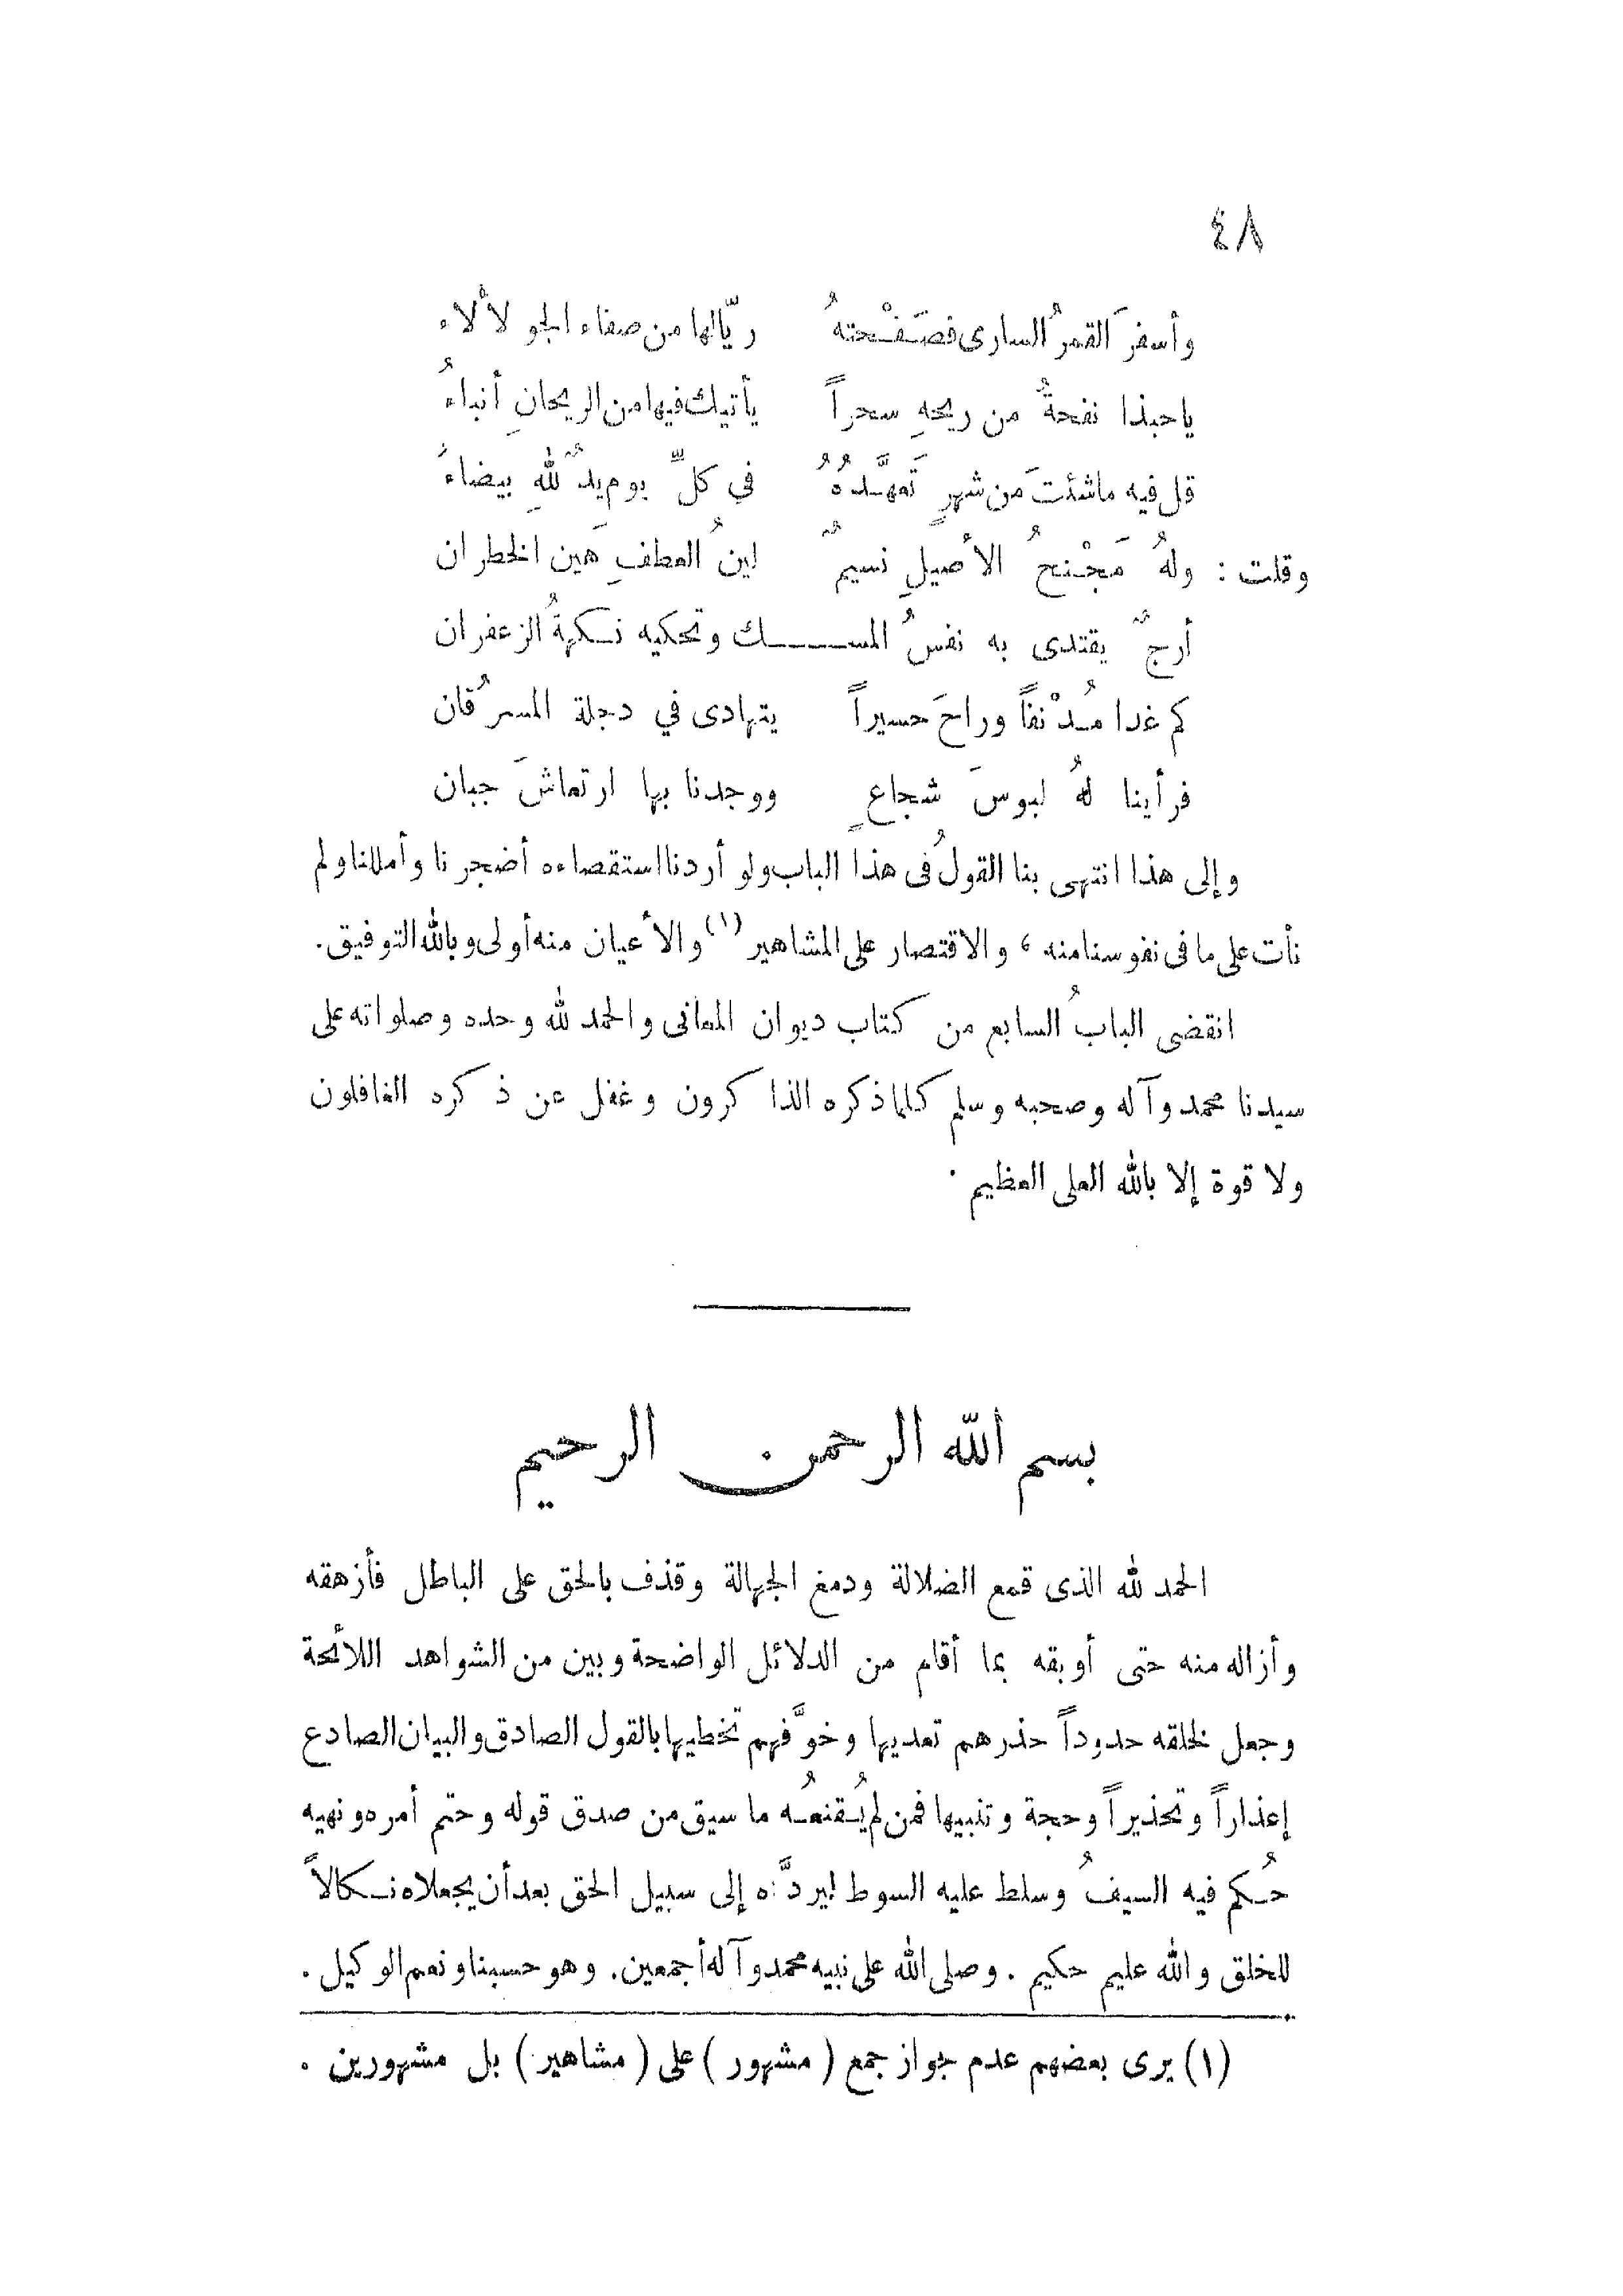 ٤٨
وأسفرَ القمرُ السارى فصَفْحتهُ ريّالها من صفاء الجو لألاء
ياحبذا نفحةٌ من ريحهِ سحراً يأتيك فيها من الريحانِ أنباءُ
قل فيه ماشئتَ من شهرٍ تَعهَّدهُ في كلِّ يوم يدٌ للهِ بيضاءُ
وقلت : ولهُ مَجْنحُ الأصيلِ نسيمٌ لينُ العطفِ هَين الخطران
أرجٌ يقتدى به نفسُ المســـك وتحكيه نكهةُ الزعفران
كم غدا مُدْنفاً وراحَ حسيراً يتهادى في دجلة المسرُقان
فرأينا لهُ لبوسَ شجاعٍ ووجدنا بها ارتعاشَ جبان
وإلى هذا انتهى بنا القولُ فى هذا الباب ولو أردنا استقصاءه أضجرنا وأمللنا ولم
نأت على ما فى نفوسنا منه ، والاقتصار على المشاهير (١) والأعيان منه أولى وبالله التوفيق.
انقضى البابُ السابع من كتاب ديوان المعانى والحمد لله وحده وصلواته على
سيدنا محمد وآله وصحبه وسلم كلما ذكره الذاكرون وغفل عن ذكره الغافلون
ولا قوة إلا بالله العلى العظيم .
بسم الله الرحمن الرحيم
الحمد لله الذى قمع الضلالة ودمغ الجهالة وقذف بالحق على الباطل فأزهقه
وأزاله منه حتى أوبقه بما أقام من الدلائل الواضحة وبين من الشواهد اللائحة
وجعل لخلقه حدوداً حذرهم تعديها وخوَّفهم تخطيها بالقول الصادق والبيان الصادع
إعذاراً وتحذيراً وحجة وتنبيها فمن لم يُقنعُه ما سيق من صدق قوله وحتم أمره ونهيه
حُكم فيه السيفُ وسلط عليه السوط ليردَّه إلى سبيل الحق بعد أن يجعلاه نكالاً
للخلق والله عليم حكيم . وصلى الله على نبيه محمد وآله أجمعين. وهو حسبنا ونعم الوكيل .
(١) يرى بعضهم عدم جواز جمع ( مشهور ) على ( مشاهير ) بل مشهورين .